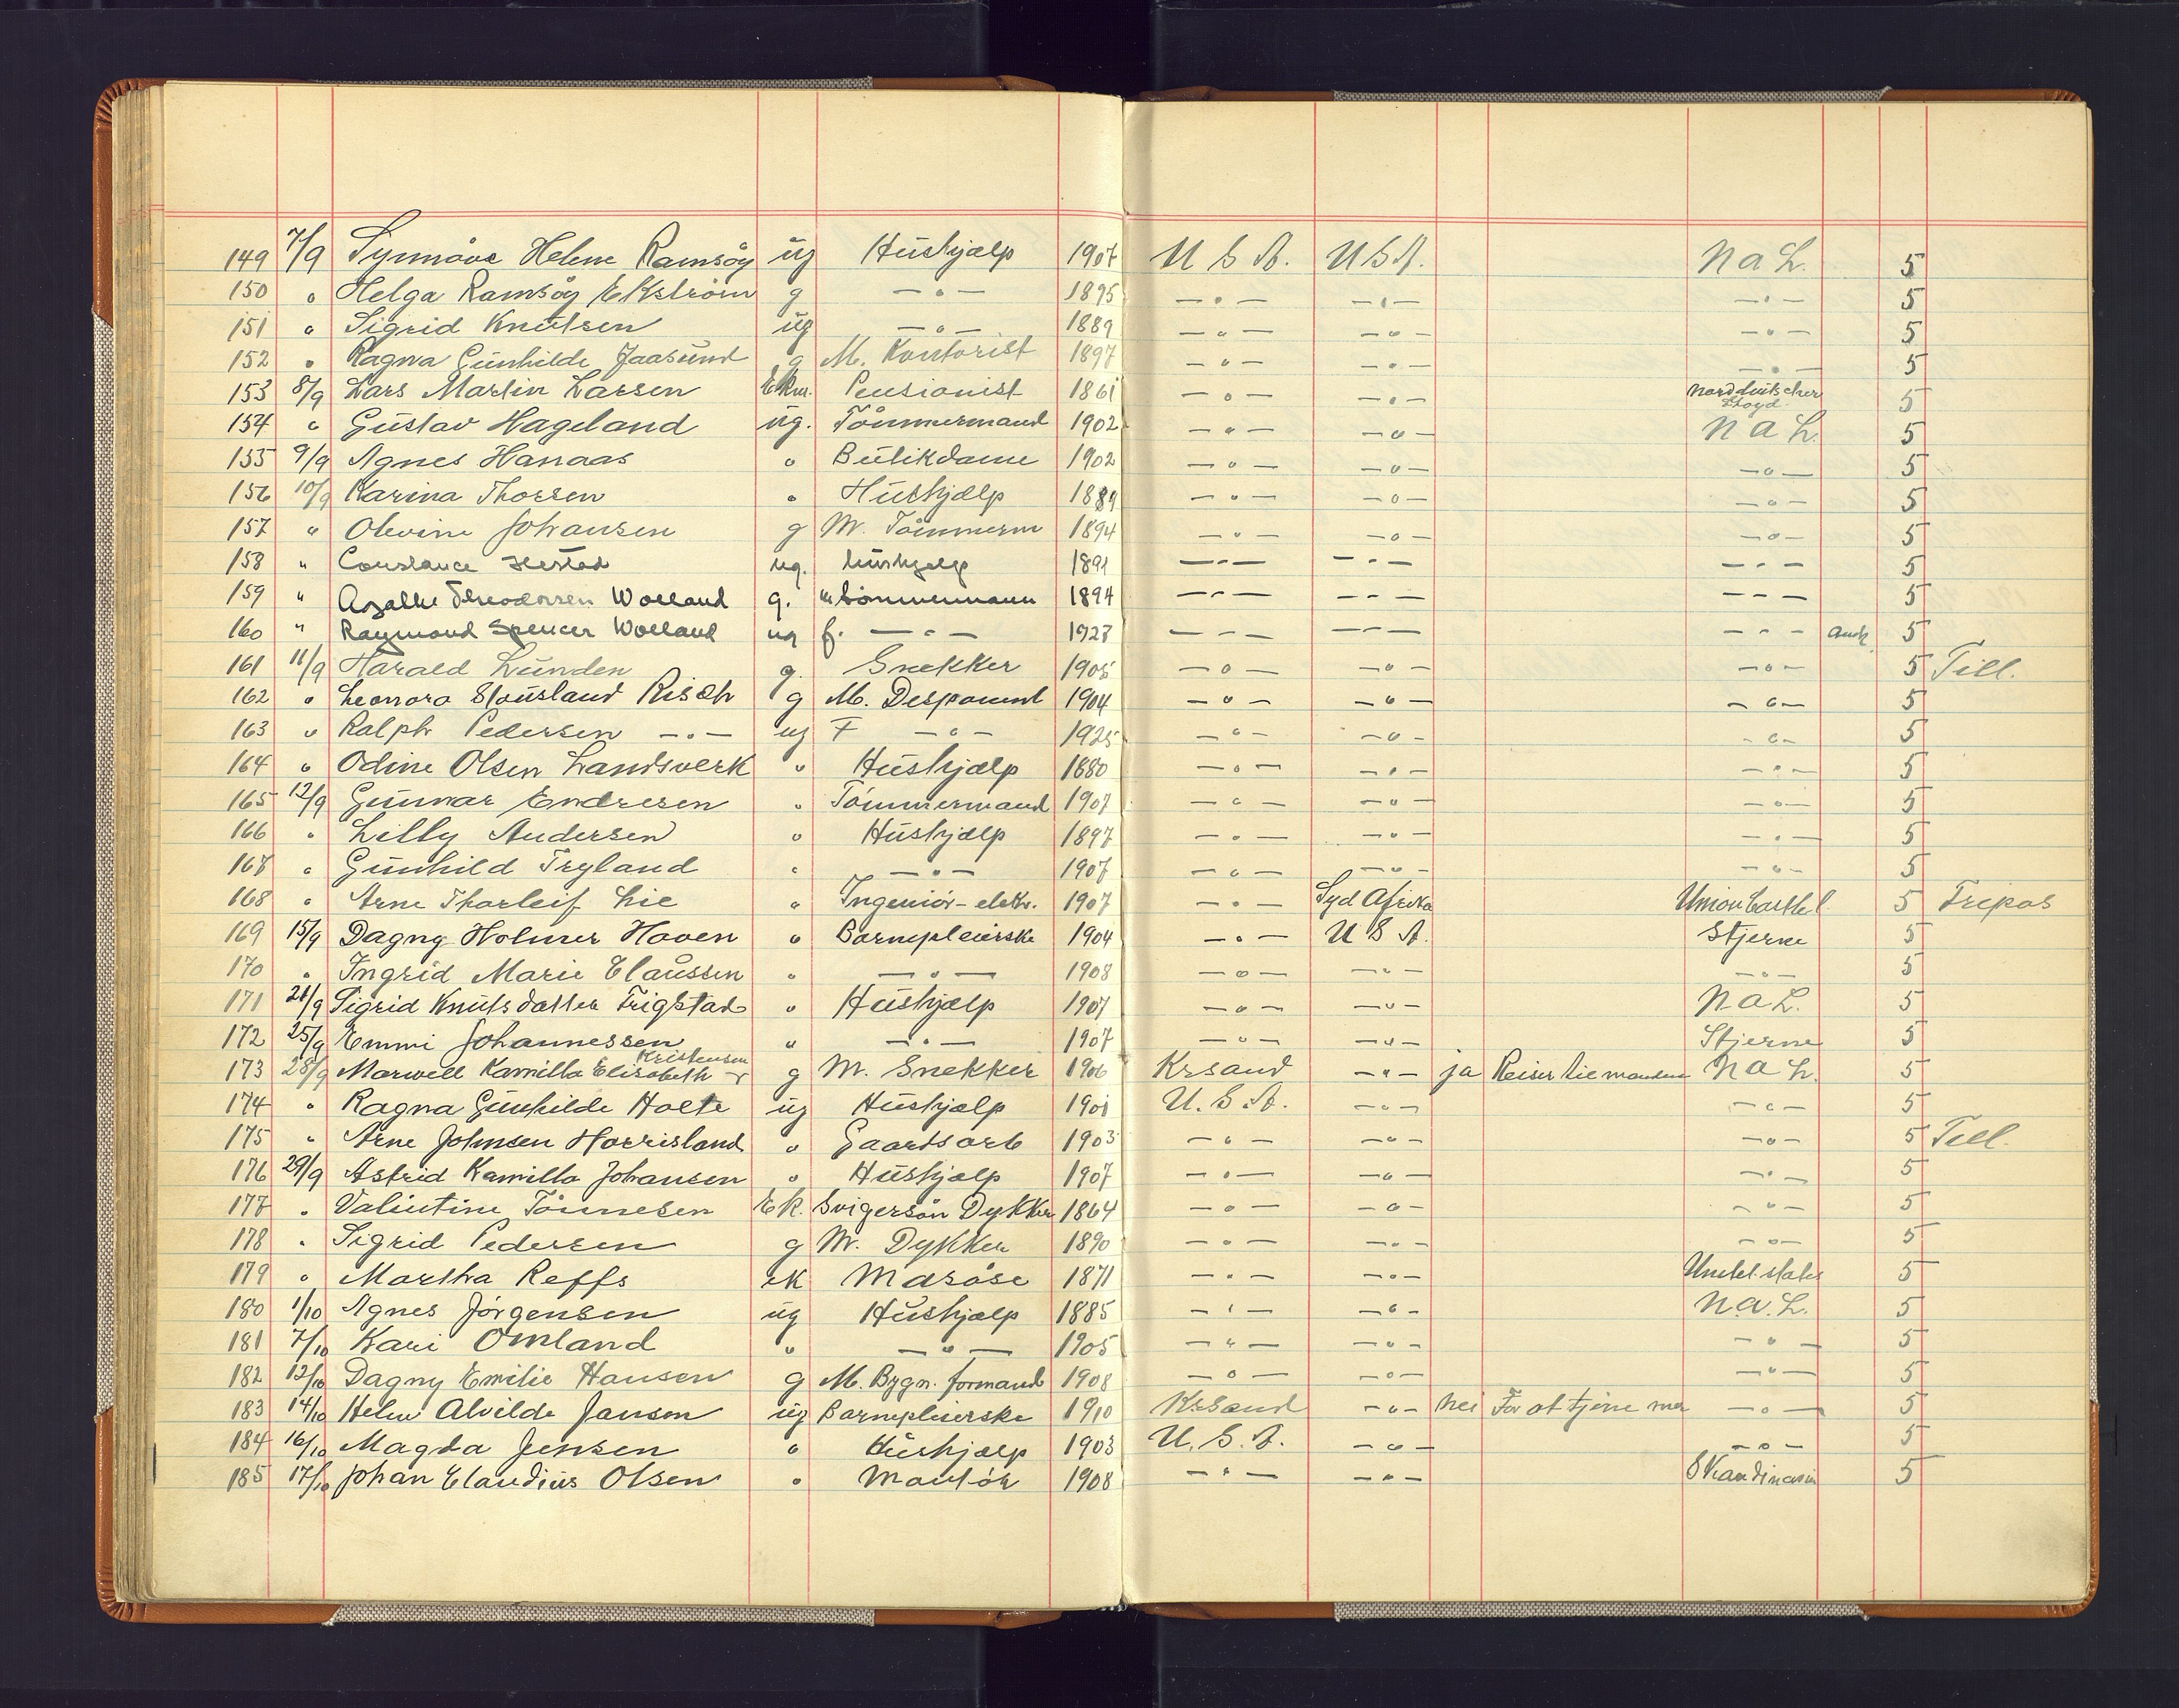 149 7/9 Synnöve Helene Ramsöy ug Hushjælp 1907 U S A. U S A. N a L. 5
150 " Helga Ramsöy Ekström g —"— 1895 —"— —"— —"— 5
151 " Sigrid Knutsen ug —"— 1889 —"— —"— —"— 5
152 " Ragna Gunhilde Jaasund g M. Kontorist 1897 —"— —"— —"— 5
153 8/9 Lars Martin Larsen Ekm. Pensionist 1861 —"— —"— Norddeutscher Lloyd 5
154 " Gustav Hageland ug. Tömmermand 1902 —"— —"— N a L. 5
155 9/9 Agnes Hanaas " Butikdame 1902 —"— —"— —"— 5
156 10/9 Karina Thorsen " Hushjælp 1889 —"— —"— —"— 5
157 " Olevine Johansen g M. Tömmerm 1894 —"— —"— —"— 5
158 " Constance ug. hushjelp 1891 —"— —"— —"— 5
159 " Agathe Theodorsen Wolland g. m tömmermann 1894 —"— —"— —"— 5
160 " Raymond Spencer Wolland ug f. —"— 1927 —"— —"— —"— 5
161 11/9 Harald Lunden g. Snekker 1905 —"— —"— —"— 5 Till.
162 " Leonora Stousland Risch g M. 1904 —"— —"— —"— 5
163 " Ralph Pedersen —"— ug F —"— 1925 —"— —"— —"— 5
164 " Odine Olsen Landsverk " Hushjælp 1880 —"— —"— —"— 5
165 12/9 Gunnar Endresen " Tömmermand 1907 —"— —"— —"— 5
166 " Lilly Andersen " Hushjælp 1897 —"— —"— —"— 5
167 " Gunhild Tryland " —"— 1907 —"— —"— —"— 5
168 " Arne Thorleif Lie " Ingeniör-elektr. 1907 —"— Syd Afrika Union Casthel 5 Fripas
169 15/9 Dagny Holmer Hoven " Barnepleierske 1904 —"— U S A. Stjerne 5
170 " Ingrid Marie Claussen " —"— 1908 —"— —"— —"— 5
171 21/9 Sigrid Knutsdatter Trigstad " Hushjælp 1907 —"— —"— N a L. 5
172 25/9 Emmi Johannessen " —"— 1907 —"— —"— Stjerne 5
173 28/9 Maxwell Kamilla Elisabeth Kristensen g M. Snekker 1906 Krsand —"— ja Reiser til manden N a L. 5
174 " Ragna Gunhilde Holte ug Hushjælp 1901 U. S. A. —"— —"— 5
175 " Arne Johnsen Horrisland " Gaardsarb 1903 —"— —"— —"— 5 Till.
176 29/9 Astrid Kamilla Johansen " Hushjælp 1907 —"— —"— —"— 5
177 " Valentine Tönnesen Ek. Svigersön Dykker 1864 —"— —"— —"— 5
178 " Sigrid Pedersen g M. Dykker 1890 —"— —"— —"— 5
179 " Martha Reffs ek Masöse 1871 —"— —"— United states 5
180 1/10 Agnes Jörgensen ug Hushjælp 1885 —"— —"— N a. L. 5
181 7/10 Kari Omland " —"— 1905 —"— —"— —"— 5
182 12/10 Dagny Emilie Hansen g M. Bygn. formand 1908 —"— —"— —"— 5
183 14/10 Helen Alvilde Janson ug Barnepleierske 1910 KrSand —"— nei For at tjene mer —"— 5
184 16/10 Magda Jensen " Hushjælp 1903 U. S. A. —"— —"— 5
185 17/10 Johan Claudius Olsen " Montör 1908 —"— —"— Skandinavia 5